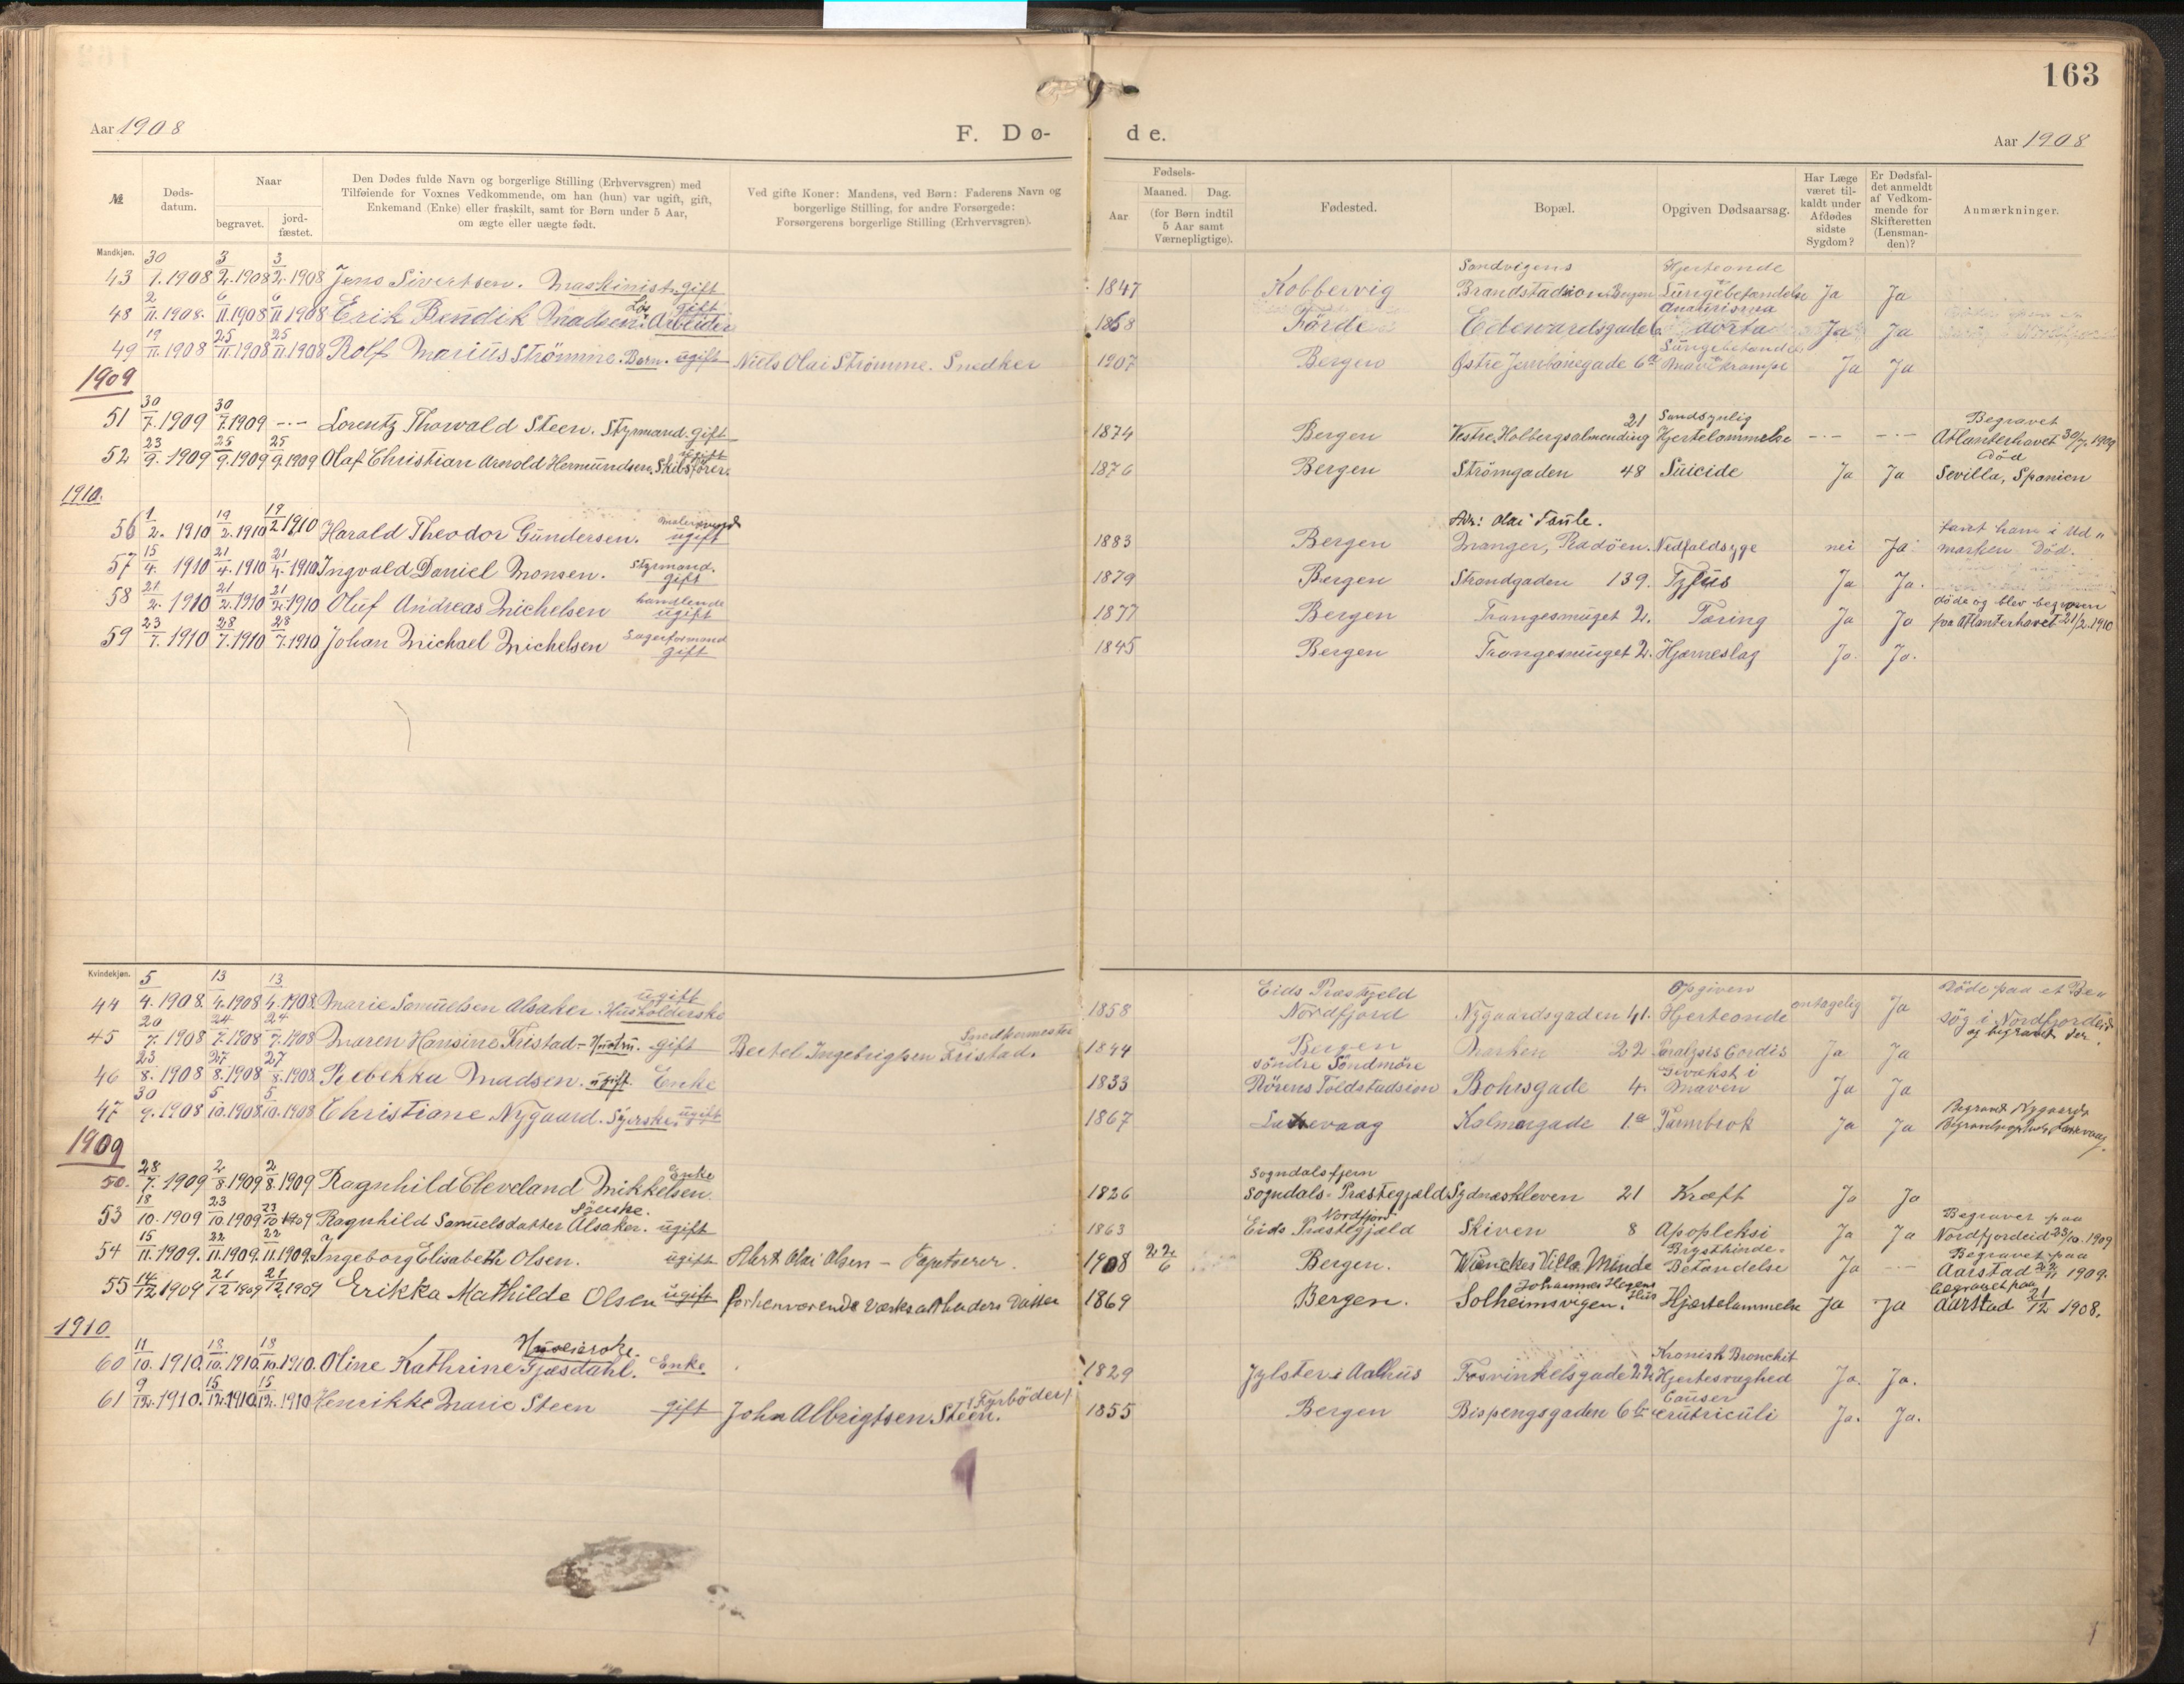 163
Aar 1908
F. Dø-
de.
Aar 1908
№
Døds-
datum.
Naar
begravet.
jord-
fæstet.
Den Dødes fulde Navn og borgerlige Stilling (Erhvervsgren) med
Tilføiende for Voxnes Vedkommende, om han (hun) var ugift, gift,
Enkemand (Enke) eller fraskilt, samt for Børn under 5 Aar,
om ægte eller uægte født.
Ved gifte Koner: Mandens, ved Børn: Faderens Navn og
borgerlige Stilling, for andre Forsørgede:
Forsørgerens borgerlige Stilling (Erhvervsgren).
Fødsels-
Aar
Maaned.
Dag.
(for Børn indtil
5 Aar samt
Værnepligtige).
Fødested.
Bopæl.
Opgiven Dødsaarsag.
Har Læge
været til-
kaldt under
Afdødes
sidste
Sygdom?
Er Dødsfal-
det anmeldt
af Vedkom-
mende for
Skifteretten
(Lensman-
den)?
Anmærkninger.
Mandkjøn.
43 30/1. 1908 3/2. 1908 3/2. 1908 Jens Sivertsen. Maskinist. gift 1847 Kobbervig Sandvigens Brandstadion. Bergen Hjerteonde Lungebetændelse Ja Ja
48 2/11. 1908. 6/11 1908 6/11 1908 Erik Bendik Madsen. Løs Arbeider gift 1858 Førde Edewardsgade 6 aorta Ja Ja
49 19/11 1908 25/11 1908 25/11 1908 Rolf Marius Strömme. Barn. ugift Niels Olai Strömme. Snedker 1907 Bergen Østre Jernbanegade 6a Ja Ja
1909
51 30/7. 1909 30/7. 1909 -.- Lorentz Thorvald Steen. Styrmand. gift 1874 Bergen Vestre Holbergsalmending 21 Sandsynlig Hjertelammelse -.- -.- Begravet Atlanterhavet 30/7. 1909
52 23/9. 1909 25/9. 1909 25/9. 1909 Olaf Christian Arnold Hermundsen. Skibsfører. 1876 Bergen Strömgaden 48 Suicide Ja Ja Död Sevilla, Spanien
1910.
56 1/2. 1910 19/2. 1910 19/2 1910 Harald Theodor Gundersen. ugift 1883 Bergen Adr: Olai Taule. Manger, Radöen. Nedfaldsyge nei Ja fant ham i Ud„ marken Död.
57 15/4. 1910 21/4. 1910 21/4. 1910 Ingvald Daniel Monsen. Styrmand. gift 1879 Bergen Strandgaden 139. Tyfus Ja Ja.
58 21/2. 1910 21/2. 1910 21/2. 1910 Oluf Andreas Michelsen handlende ugift 1877 Bergen Trangesmuget 2. Tæring Ja Ja döde og blev begraven paa Atlanterhavet 21/2. 1910
59 23/7. 1910 28/7. 1910 28/7. 1910 Johan Michael Michelsen Sagerformand gift 1845 Bergen Trangesmuget 2. Hjærneslag Ja. Ja.
Kvindekjøn.
44 5/4. 1908. 13/4. 1908 13/4. 1908. Marie Samuelsen Alsaker. Husholderske ugift 1858 Eids Præstgjeld Nordfjord Nygaardsgaden 41. Opgiven Hjerteonde antagelig Ja Döde paa et Be„ søg i Nordfjordeid og begravet der.
45 20/7. 1908 24/7. 1908 24/7. 1908 Maren Hansine Fristad - Hustru. gift Bertel Ingebrigtsen Fristad. Snedkermester 1844 Bergen Marken 22 Paralysis Cordis Ja Ja
46 23/8. 1908 27/8. 1908 27/8. 1908 Rebekka Madsen. ugift. Enke 1833 Söndre Söndmöre Rörens Toldstadsion Bohrsgade 4. Gevækst i Maven Ja Ja
47 30/9. 1908 5/10. 1908 5/10. 1908 Christiane Nygaard. Syerske. ugift 1867 Laxevaag Kalmargade 1.a Tarmbrok Ja Ja
1909
50. 28/7. 1909 2/8. 1909 2/8. 1909 Ragnhild Cleveland Mikkelsen. Enke 1826 Sogndalsfjern Sogndals. Præstegjæld Sydneskleven 21 Kræft Ja Ja
53 18/10. 1909 23/10. 1909 23/10 1909 Ragnhild Samuelsdatter Alsaker. Syerske. ugift 1863 Eids Præstegjæld Nordfjord Skiven 8 Apopleksi Ja Ja Begravet paa Nordfjordeid 23/10. 1909
54 15/11. 1909. 22/11. 1909. 22/11. 1909. Ingeborg Elisabeth Olsen. ugift Olai Olsen - Tapetserer. 1908 22/6 Bergen. Wenckes Villa. Minde Brysthinde- Betændelse Ja -.- Begravet paa Aarstad 22/11 1909.
55 14/12 1909 21/12 1909 21/12. 1909 Erikka Mathilde Olsen ugift forhenværende Datter 1869 Bergen. Solheimsvigen. Johannes Hus Hjertelammelse Ja Ja begravet paa Aarstad 21/12 1908.
1910
60 11/10. 1910. 18/10. 1910. 18/10. 1910. Oline Kathrine Gjæsdahl. Enke 1829 Jylster i Aalhus 22 Kronisk Bronchit Hjertesvaghed Ja. Ja.
61 9/12. 1910. 15/12. 1910. 15/12. 1910 Henrikke Marie Steen gift John Albrigtsen Steen. (Fyrböder) 1855 Bergen Bispengsgaden 6b Ja. Ja.